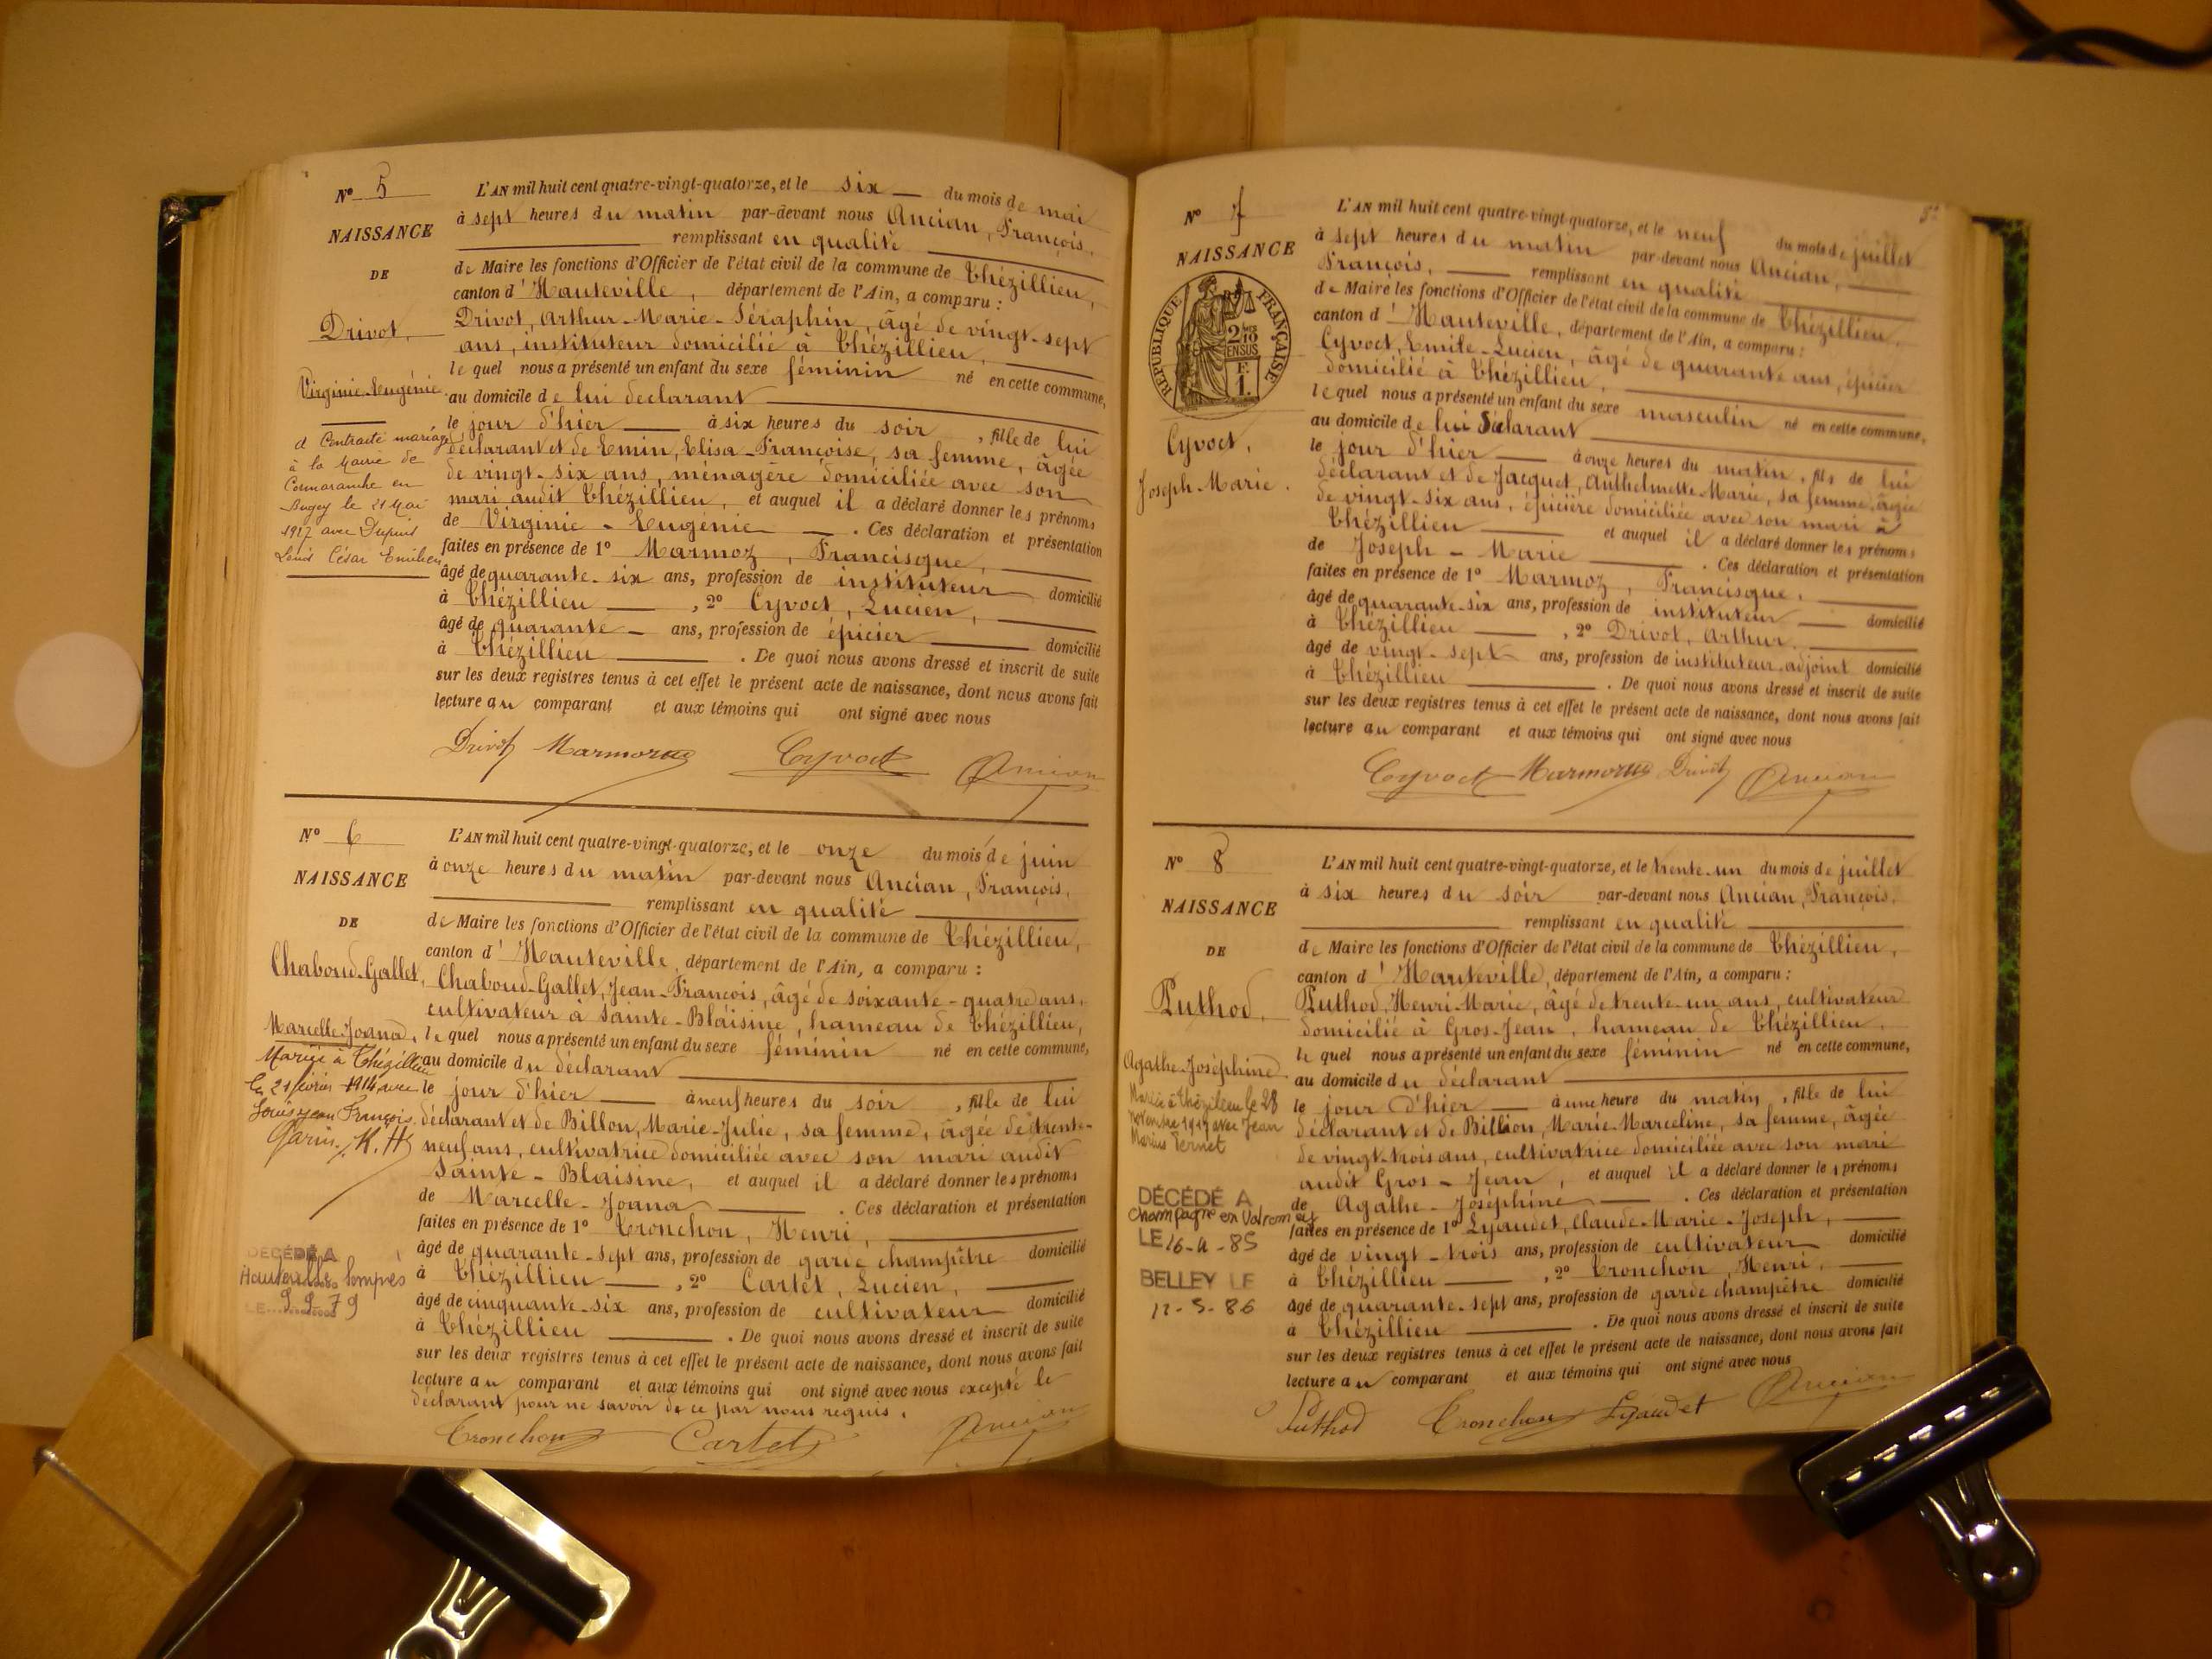 N° 5
NAISSANCE
DE
Drivot,
Virginie-Eugénie.
a Contracté mariage
à la Mairie de
Cormaranche en
Bugey le 21 Mai
1917 avec Dupuis
Louis César Emilien
L'AN mil huit cent quatre-vingt-quatorze, et le six du mois de mai
à sept heures du matin par-devant nous Ancian, François,
remplissant en qualité
de Maire les fonctions d'Officier de l'état civil de la commune de Thézillieu,
canton d'Hauteville, département de l'Ain, a comparu :
Drivot, Arthur-Marie-Séraphin, âgé de vingt-sept
ans, instituteur domicilié à Thézillieu,
lequel nous a présenté un enfant du sexe féminin né en cette commune,
au domicile de lui déclarant
le jour d'hier à six heures du soir, fille de lui
déclarant et de Emin, Elisa-Françoise, sa femme, âgée
de vingt-six ans, ménagère domiciliée avec son
mari audit Thézillieu, et auquel il a déclaré donner les prénoms
de Virginie-Eugénie. Ces déclaration et présentation
faites en présence de 1° Marmoz, Francisque,
âgé de quarante-six ans, profession de instituteur domicilié
à Thézillieu, 2° Cyvoct, Lucien,
âgé de quarante ans, profession de épicier domicilié
à Thézillieu. De quoi nous avons dressé et inscrit de suite
sur les deux registres tenus à cet effet le présent acte de naissance, dont nous avons fait
lecture au comparant et aux témoins qui ont signé avec nous
Drivot Marmoz Cyvoct Ancian
N° 6
NAISSANCE
DE
Chaboud-Gallet,
Marcelle-Joana.
Mariée à Thézillieu
le 21 février 1914 avec
Louis Jean François
Garin.
DÉCÉDÉ A
Hauteville Lompnes
LE 9 9 79
L'AN mil huit cent quatre-vingt-quatorze, et le onze du mois de juin
à onze heures du matin par-devant nous Ancian, François,
remplissant en qualité
de Maire les fonctions d'Officier de l'état civil de la commune de Thézillieu,
canton d'Hauteville, département de l'Ain, a comparu :
Chaboud-Gallet, Jean-François, âgé de soixante-quatre ans,
cultivateur à Sainte-Blaisine, hameau de Thézillieu,
lequel nous a présenté un enfant du sexe féminin né en cette commune,
au domicile du déclarant
le jour d'hier à neuf heures du soir, fille de lui
déclarant et de Billon, Marie-Julie, sa femme, âgée de trente-
neuf ans, cultivatrice domiciliée avec son mari audit
Sainte-Blaisine, et auquel il a déclaré donner les prénoms
de Marcelle-Joana. Ces déclaration et présentation
faites en présence de 1° Tronchon, Henri,
âgé de quarante-sept ans, profession de garde champêtre domicilié
à Thézillieu, 2° Cartet, Lucien,
âgé de cinquante-six ans, profession de cultivateur domicilié
à Thézillieu. De quoi nous avons dressé et inscrit de suite
sur les deux registres tenus à cet effet le présent acte de naissance, dont nous avons fait
lecture au comparant et aux témoins qui ont signé avec nous excepté le
déclarant pour ne savoir de ce par nous requis.
Tronchon Cartet Ancian
N° 7
NAISSANCE
RÉPUBLIQUE FRANÇAISE
2/10
EN SUS
F.
1.
Cyvoct,
Joseph-Marie.
L'AN mil huit cent quatre-vingt-quatorze, et le neuf du mois de juillet
à sept heures du matin par-devant nous Ancian,
François, remplissant en qualité
de Maire les fonctions d'Officier de l'état civil de la commune de Thézillieu,
canton d'Hauteville, département de l'Ain, a comparu :
Cyvoct, Emile-Lucien, âgé de quarante ans, épicier
domicilié à Thézillieu,
lequel nous a présenté un enfant du sexe masculin né en cette commune,
au domicile de lui déclarant
le jour d'hier à onze heures du matin, fils de lui
déclarant et de Jacquet, Anthelmette-Marie, sa femme, âgée
de vingt-six ans, épicière domiciliée avec son mari à
Thézillieu et auquel il a déclaré donner les prénoms
de Joseph-Marie. Ces déclaration et présentation
faites en présence de 1° Marmoz, Francisque,
âgé de quarante-six ans, profession de instituteur domicilié
à Thézillieu, 2° Drivot, Arthur,
âgé de vingt-sept ans, profession de instituteur adjoint domicilié
à Thézillieu. De quoi nous avons dressé et inscrit de suite
sur les deux registres tenus à cet effet le présent acte de naissance, dont nous avons fait
lecture au comparant et aux témoins qui ont signé avec nous
Cyvoct Marmoz Drivot Ancian
N° 8
NAISSANCE
DE
Puthod,
Agathe-Joséphine.
Mariée à Thézillieu le 28
novembre 1917 avec Jean
Marius Ternet
DÉCÉDÉ A
Champagne en Valromey
LE 16-4-85
BELLEY LE
12-3-86
L'AN mil huit cent quatre-vingt-quatorze, et le trente-un du mois de juillet
à six heures du soir par-devant nous Ancian, François,
remplissant en qualité
de Maire les fonctions d'Officier de l'état civil de la commune de Thézillieu,
canton d'Hauteville, département de l'Ain, a comparu :
Puthod, Henri-Marie, âgé de trente-un ans, cultivateur
domicilié à Gros-Jean, hameau de Thézillieu,
lequel nous a présenté un enfant du sexe féminin né en cette commune,
au domicile du déclarant
le jour d'hier à une heure du matin, fille de lui
déclarant et de Billion, Marie-Marceline, sa femme, âgée
de vingt-trois ans, cultivatrice domiciliée avec son mari
audit Gros-Jean, et auquel il a déclaré donner les prénoms
de Agathe-Joséphine. Ces déclaration et présentation
faites en présence de 1° Lyaudet, Claude-Marie-Joseph,
âgé de vingt-trois ans, profession de cultivateur domicilié
à Thézillieu, 2° Tronchon, Henri,
âgé de quarante-sept ans, profession de garde champêtre domicilié
à Thézillieu. De quoi nous avons dressé et inscrit de suite
sur les deux registres tenus à cet effet le présent acte de naissance, dont nous avons fait
lecture au comparant et aux témoins qui ont signé avec nous
Puthod Tronchon Lyaudet Ancian